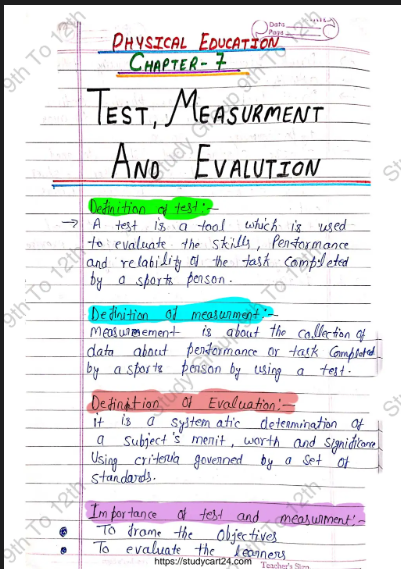 Data
Page
PHYSICAL EDUCATION
CHAPTER-7
TEST, MEASURMENT
AND EVALUTION
Definition of test:-
→ A test is a tool which is used
to evaluate the skills, Performance
and relability of the task completed
by a sports person.
Definition of measurment:-
Measurmement is about the collection of
data about performance or task Completed
by a sports person by using a test.
Definition of Evaluation:-
it is a system atic determination of
a subject's merit, worth and significane
Using criteria governed by a set of
standards.
Importance of test and measurment:-
To frame the objectives
To evaluate the learners
https://studycart24.com
Teacher's Sign
9th To 12th
9th To 12th Study Group 9th To 12th
9th To 12th Study Group 9th To 12th
9th To 12th